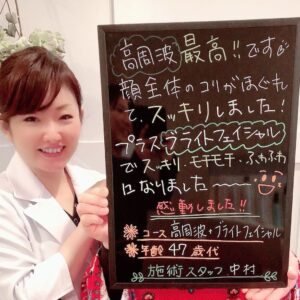 高周波最高!!です
顔全体のコリがほぐれ
て、スッキリしました!
プラスブライトフェイシャル
でスッキリ、モチモチ・ふわふわ
になりました〜
感動しました!!
コース 高周波+ブライトフェイシャル
年齢 47歳代
施術スタッフ 中村